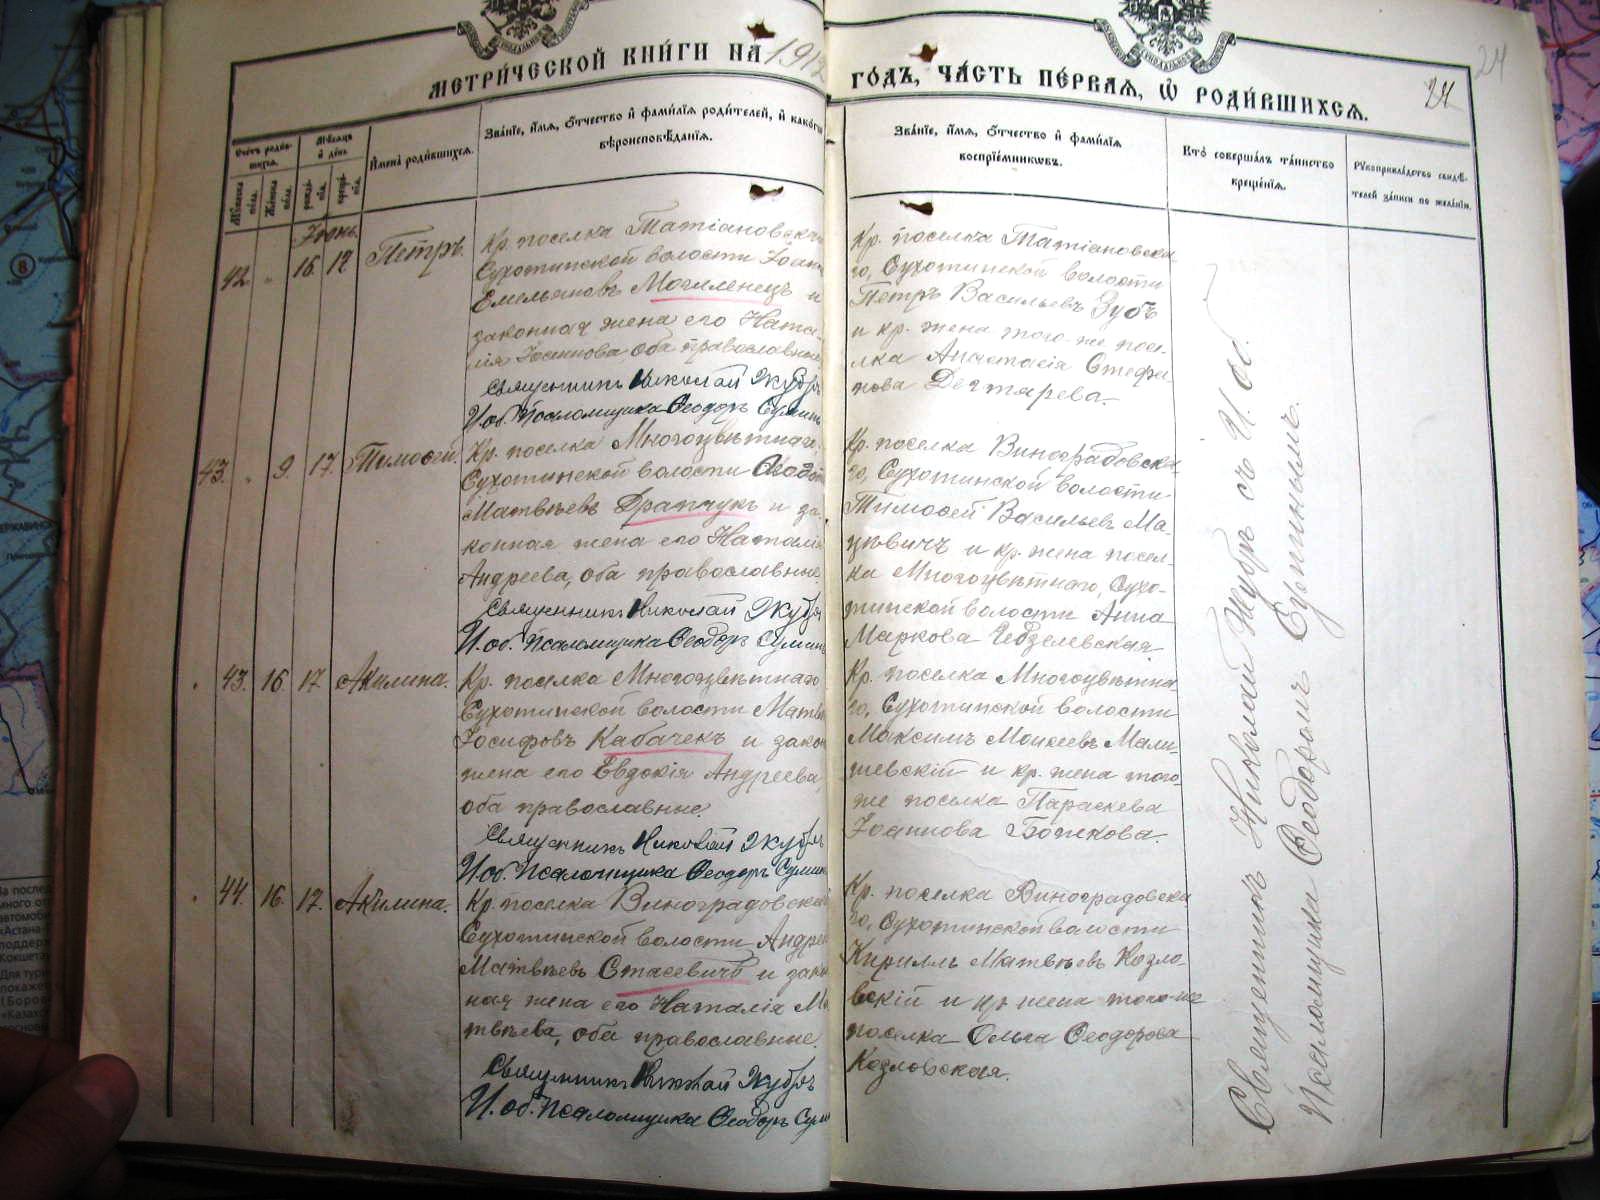 МЕТРИ́ЧЕСКОЙ КНИ́ГИ НА 1912
ГО́ДЪ, ЧА́СТЬ ПЕ́РВАЯ, Ѡ҆ РОДИ́ВШИХСЯ.
24
24
Счетъ роди́в-
шихся.
Мѣсяцъ
и де́нь
Мужеска
пола.
Же́нска
пола.
рожде́-
нія.
креще́-
нія.
Имена̀ роди́вшихся.
Зва́ніе, и́мя, о́тчество и фами́лія роди́телей, и како́гѡ
вѣроисповѣ́данія.
Зва́ніе, и́мя, о́тчество и фами́лія
воспріе́мниковъ.
Кто̀ соверша́лъ та́инство
креще́нія.
Рукоприкла́дство свидѣ́-
телей за́писи по жела́нію.
Іюнь.
42. " 16. 17 Петръ.
Кр. поселка Татіановска
Сухотинской волости Іоан
Емельяновъ Могиленецъ и
законная жена его Ната-
лія Іоаннова оба православные
Священникъ Николай Жубръ
И. об. Псаломщика Ѳеодоръ Сумин
Кр. поселка Татіановска
го, Сухотинской волости
Петръ Васильевъ Зубъ
и кр. жена того-же посе-
лка Анастасія Стефа
нова Дегтярева.
43. " 9. 17. Тимоѳей.
Кр. поселка Многоцвѣтнаго,
Сухотинской волости Ѳеодот
Матвѣевъ Драпчукъ и за-
конная жена его Наталія
Андреева, оба православные.
Священникъ Николай Жубръ
И. об. Псаломщика Ѳеодоръ Сумин
Кр. поселка Виноградовска
го, Сухотинской волости
Тимоѳей Васильевъ Ма-
цкевичъ и кр. жена посел-
ка Многоцвѣтнаго, Сухо-
тинской волости Анна
Маркова
43. 16. 17 Акилина.
Кр. поселка Многоцвѣтнаго
Сухотинской волости Матвѣй
Іосифовъ Кабаченъ и закон
жена его Евдокія Андреева,
оба православные.
Священникъ Николай Жубръ
И. об. Псаломщика Ѳеодоръ Сумин
Кр. поселка Многоцвѣтна-
го, Сухотинской волости
Максимъ Моисеевъ Мали-
шевскій и кр. жена того-
же поселка Параскева
Іоаннова Божкова.
44. 16. 17. Акилина.
Кр. поселка Виноградовскаг
Сухотинской волости Андрей
Матвѣевъ Стасевичъ и закон
ная жена его Наталія Ма
твѣева, оба православные.
Священникъ Николай Жубръ
И. об. Псаломщика Ѳеодоръ Сумин
Кр. поселка Виноградовска
го, Сухотинской волости
Кириллъ Матвѣевъ Козло-
вскій и кр. жена того-же
поселка Ольга Ѳеодорова
Козловская.
Священникъ Николай Жубръ съ И. об.
Псаломщика Ѳеодоромъ Суминымъ.